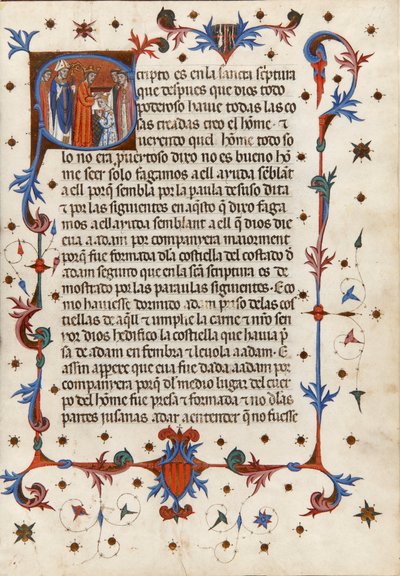 Scripto es en la sancta scriptura
que despues que dios todo
poderoso hauie todas las co
sas creadas creo el hõme ⁊
uiendo quel hõme todo so
lo no era puertoso dixo no es bueno hõ
me seer solo fagamos a ell ayuda seblãt
a ell por q̃ sembla por la paula desuso dita
⁊ por las siguientes en aq̃sto q̃ dixo faga
mos a ell ayuda semblant a ell q̃ dios die
eua a adam por companyera maiorment
por q̃ fue formada dla costiella del costado d
adam seguito que en la scã scriptura es de
mostrado por las paraulas siguientes. E co
mo hauiesse dormido adam priso de las cos
tiellas de aq̃ll ⁊ implie la carne ⁊ nr̃o sen
yor dios hedifico la costiella que hauia p̃
sa de adam en fembra ⁊ leuola a adam. E
assin appere que eua fue dada a adam por
companyera por q̃ dl medio lugar del cuer
po del hõme fue presa ⁊ formada ⁊ no dlas
partes iusanas a dar a entender q̃ no fuesse